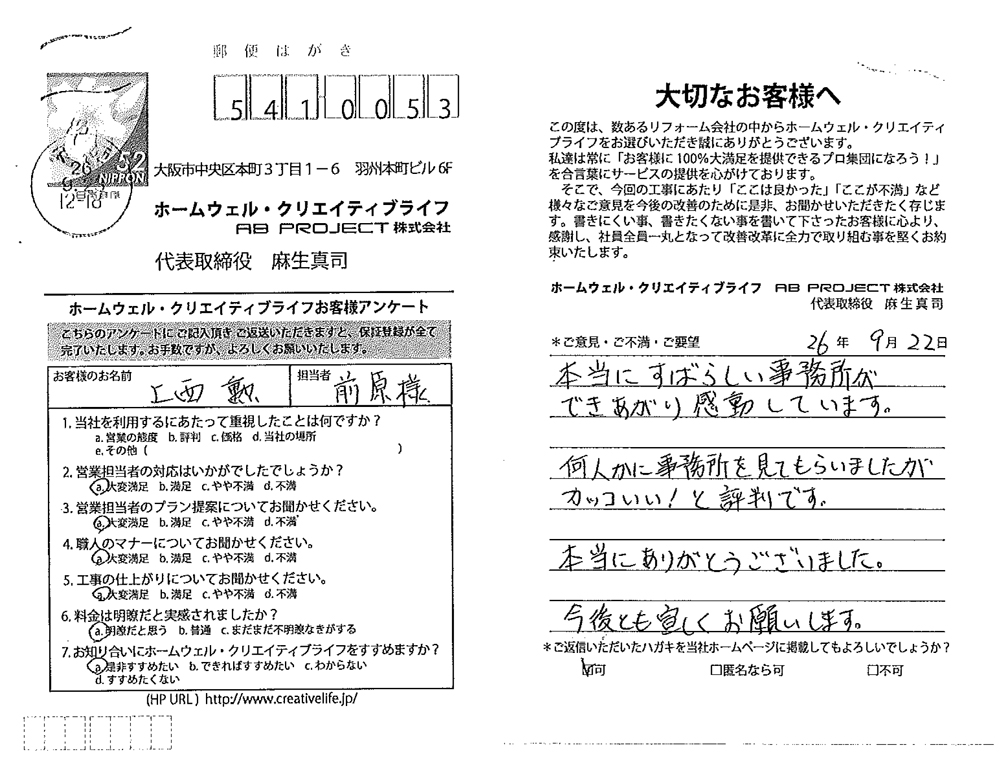 郵便はがき
52
NIPPON
26
12-18
5410053
大阪市中央区本町3丁目1-6 羽州本町ビル6F
ホームウェル・クリエイティブライフ
AB PROJECT株式会社
代表取締役 麻生真司
ホームウェル・クリエイティブライフお客様アンケート
こちらのアンケートにご記入頂きご返送いただきますと、保証登録が全て
完了いたします。お手数ですが、よろしくお願いいたします。
お客様のお名前 上西 勲 担当者 前原様
1. 当社を利用するにあたって重視したことは何ですか?
a. 営業の態度 b. 評判 c. 価格 d. 当社の場所
e. その他 ( )
2. 営業担当者の対応はいかがでしたでしょうか?
a. 大変満足 b. 満足 c. やや不満 d. 不満
3. 営業担当者のプラン提案についてお聞かせください。
a. 大変満足 b. 満足 c. やや不満 d. 不満
4. 職人のマナーについてお聞かせください。
a. 大変満足 b. 満足 c. やや不満 d. 不満
5. 工事の仕上がりについてお聞かせください。
a. 大変満足 b. 満足 c. やや不満 d. 不満
6. 料金は明瞭だと実感されましたか?
a. 明瞭だと思う b. 普通 c. まだまだ不明瞭なきがする
7. お知り合いにホームウェル・クリエイティブライフをすすめますか?
a. 是非すすめたい b. できればすすめたい c. わからない
d. すすめたくない
(HP URL) http://www.creativelife.jp/
大切なお客様へ
この度は、数あるリフォーム会社の中からホームウェル・クリエイティ
ブライフをお選びいただき誠にありがとうございます。
私達は常に「お客様に100%大満足を提供できるプロ集団になろう!」
を合言葉にサービスの提供を心がけております。
そこで、今回の工事にあたり「ここは良かった」「ここが不満」など
様々なご意見を今後の改善のために是非、お聞かせいただきたく存じま
す。書きにくい事、書きたくない事を書いて下さったお客様に心より、
感謝し、社員全員一丸となって改善改革に全力で取り組む事を堅くお約
束いたします。
ホームウェル・クリエイティブライフ AB PROJECT株式会社
代表取締役 麻生真司
*ご意見・ご不満・ご要望 26年 9月22日
本当にすばらしい事務所が
できあがり感動しています。
何人かに事務所を見てもらいましたが
カッコいい!と評判です。
本当にありがとうございました。
今後とも宜しくお願いします。
*ご返信いただいたハガキを当社ホームページに掲載してもよろしいでしょうか?
☑可 □匿名なら可 □不可